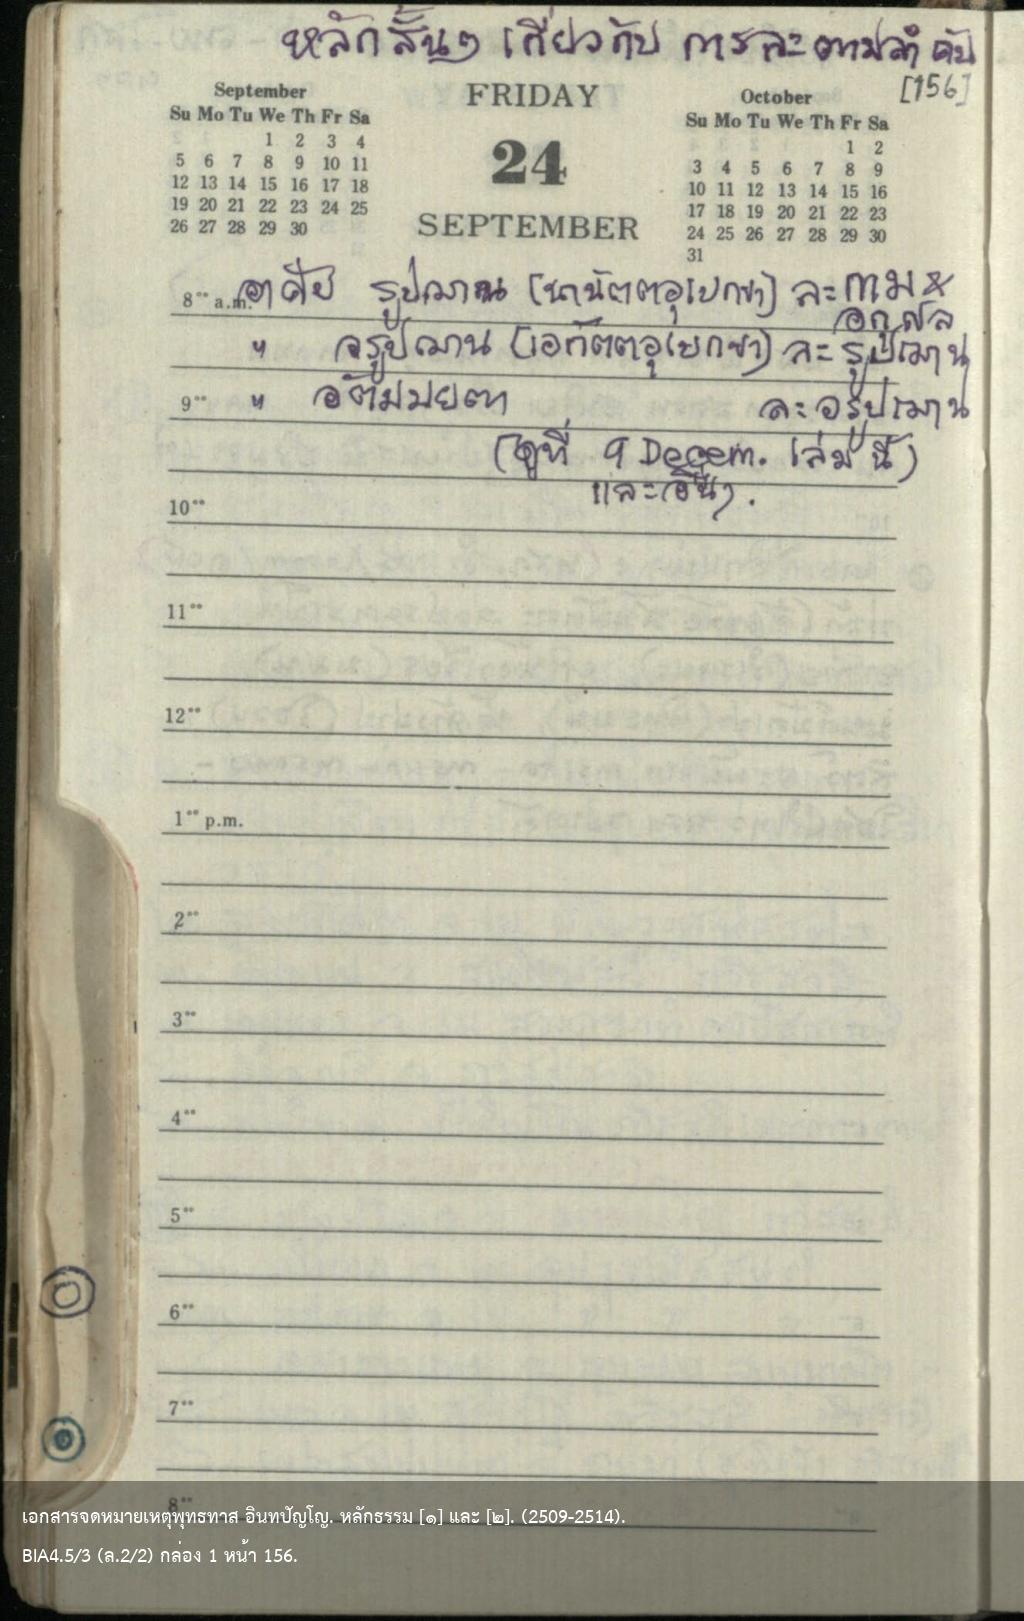 หลักสั้นๆ เกี่ยวกับ การละตามลำดับ
[156]
September
Su Mo Tu We Th Fr Sa
1 2 3 4
5 6 7 8 9 10 11
12 13 14 15 16 17 18
19 20 21 22 23 24 25
26 27 28 29 30
FRIDAY
24
SEPTEMBER
October
Su Mo Tu We Th Fr Sa
1 2
3 4 5 6 7 8 9
10 11 12 13 14 15 16
17 18 19 20 21 22 23
24 25 26 27 28 29 30
31
8°° a.m. อาศัย รูปฌาน (นานัตตอุเบกขา) ละกาม &
อกุศล
" อรูปฌาน (เอกัตตอุเบกขา) ละรูปฌาน
9°° " อตัมมยตา ละอรูปฌาน
(ดูที่ 9 Decem. เล่มนี้)
และอื่นๆ.
10°°
11°°
12°°
1°° p.m.
2°°
3°°
4°°
5°°
6°°
7°°
8°°
เอกสารจดหมายเหตุพุทธทาส อินทปัญโญ. หลักธรรม [๑] และ [๒]. (2509-2514).
BIA4.5/3 (ล.2/2) กล่อง 1 หน้า 156.